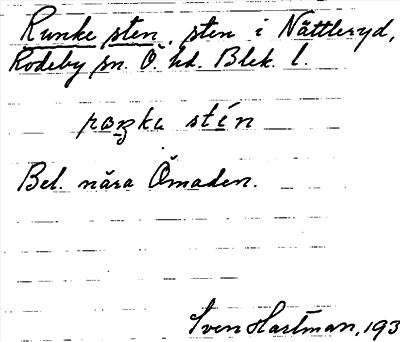 Runke sten, sten i Nättleryd,
Rödeby sn. Ö. hd. Blek. l.
stín
Bel. nära Ömaden.
Sven Hartman, 193